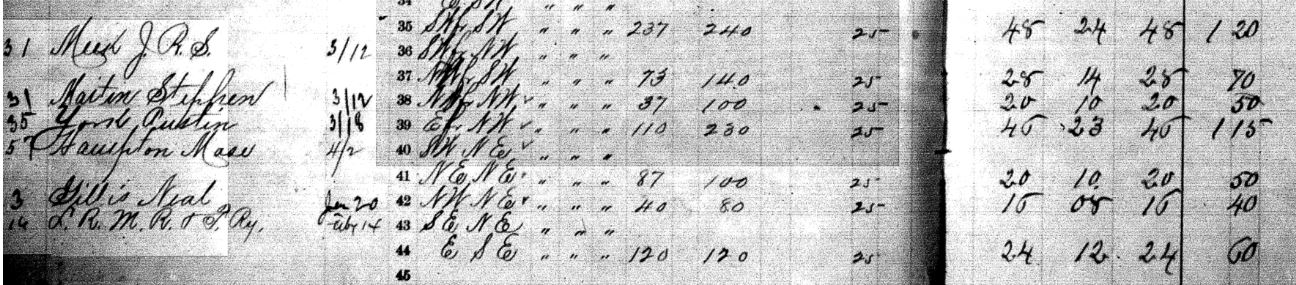 34 E SW " " "
31 Meek J. R. S. 3/12 35 SW SW " " " 237 240 25 48 24 48 1 20
36 SW NW " " "
37 NW SW " " " 73 140 25 28 14 28 70
31 Martin Stephen 3/12 38 NW NW " " " 37 100 25 20 10 20 50
35 York Pustin 3/18 39 E NW " " " 110 230 25 46 23 46 1 15
57 Hampton Mose 4/2 40 SW NE " " "
41 NE NE " " " 87 100 25 20 10 20 50
3 Gillis Neal Jan 20 42 NW NE " " " 40 80 25 16 08 16 40
14 L. R. M. R. & T. Ry. Feby 14 43 SE NE " " "
44 E SE " " " 120 120 25 24 12 24 60
45